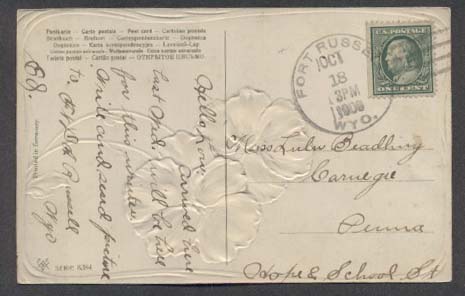 Postkarte — Carte postale — Post card — Correspondenzkarte
Briefkaart — Brefkort — Cartolina postale — Dopisnica
Weltpostverein
Tarjeta postal — ОТКРЫТОЕ ПИСЬМО
Printed in Germany
SERIE
Hello Lou
arrived here
last Wed. will be here
for this winter
write and send picture
to Ft. D. A. Russell
Wyo
Ed.
FORT RUSSELL
OCT
18
3 PM
1909
WYO.
U.S. POSTAGE
ONE CENT
Miss Lulu Deadling
Carnegie
Penna
Hope & School St